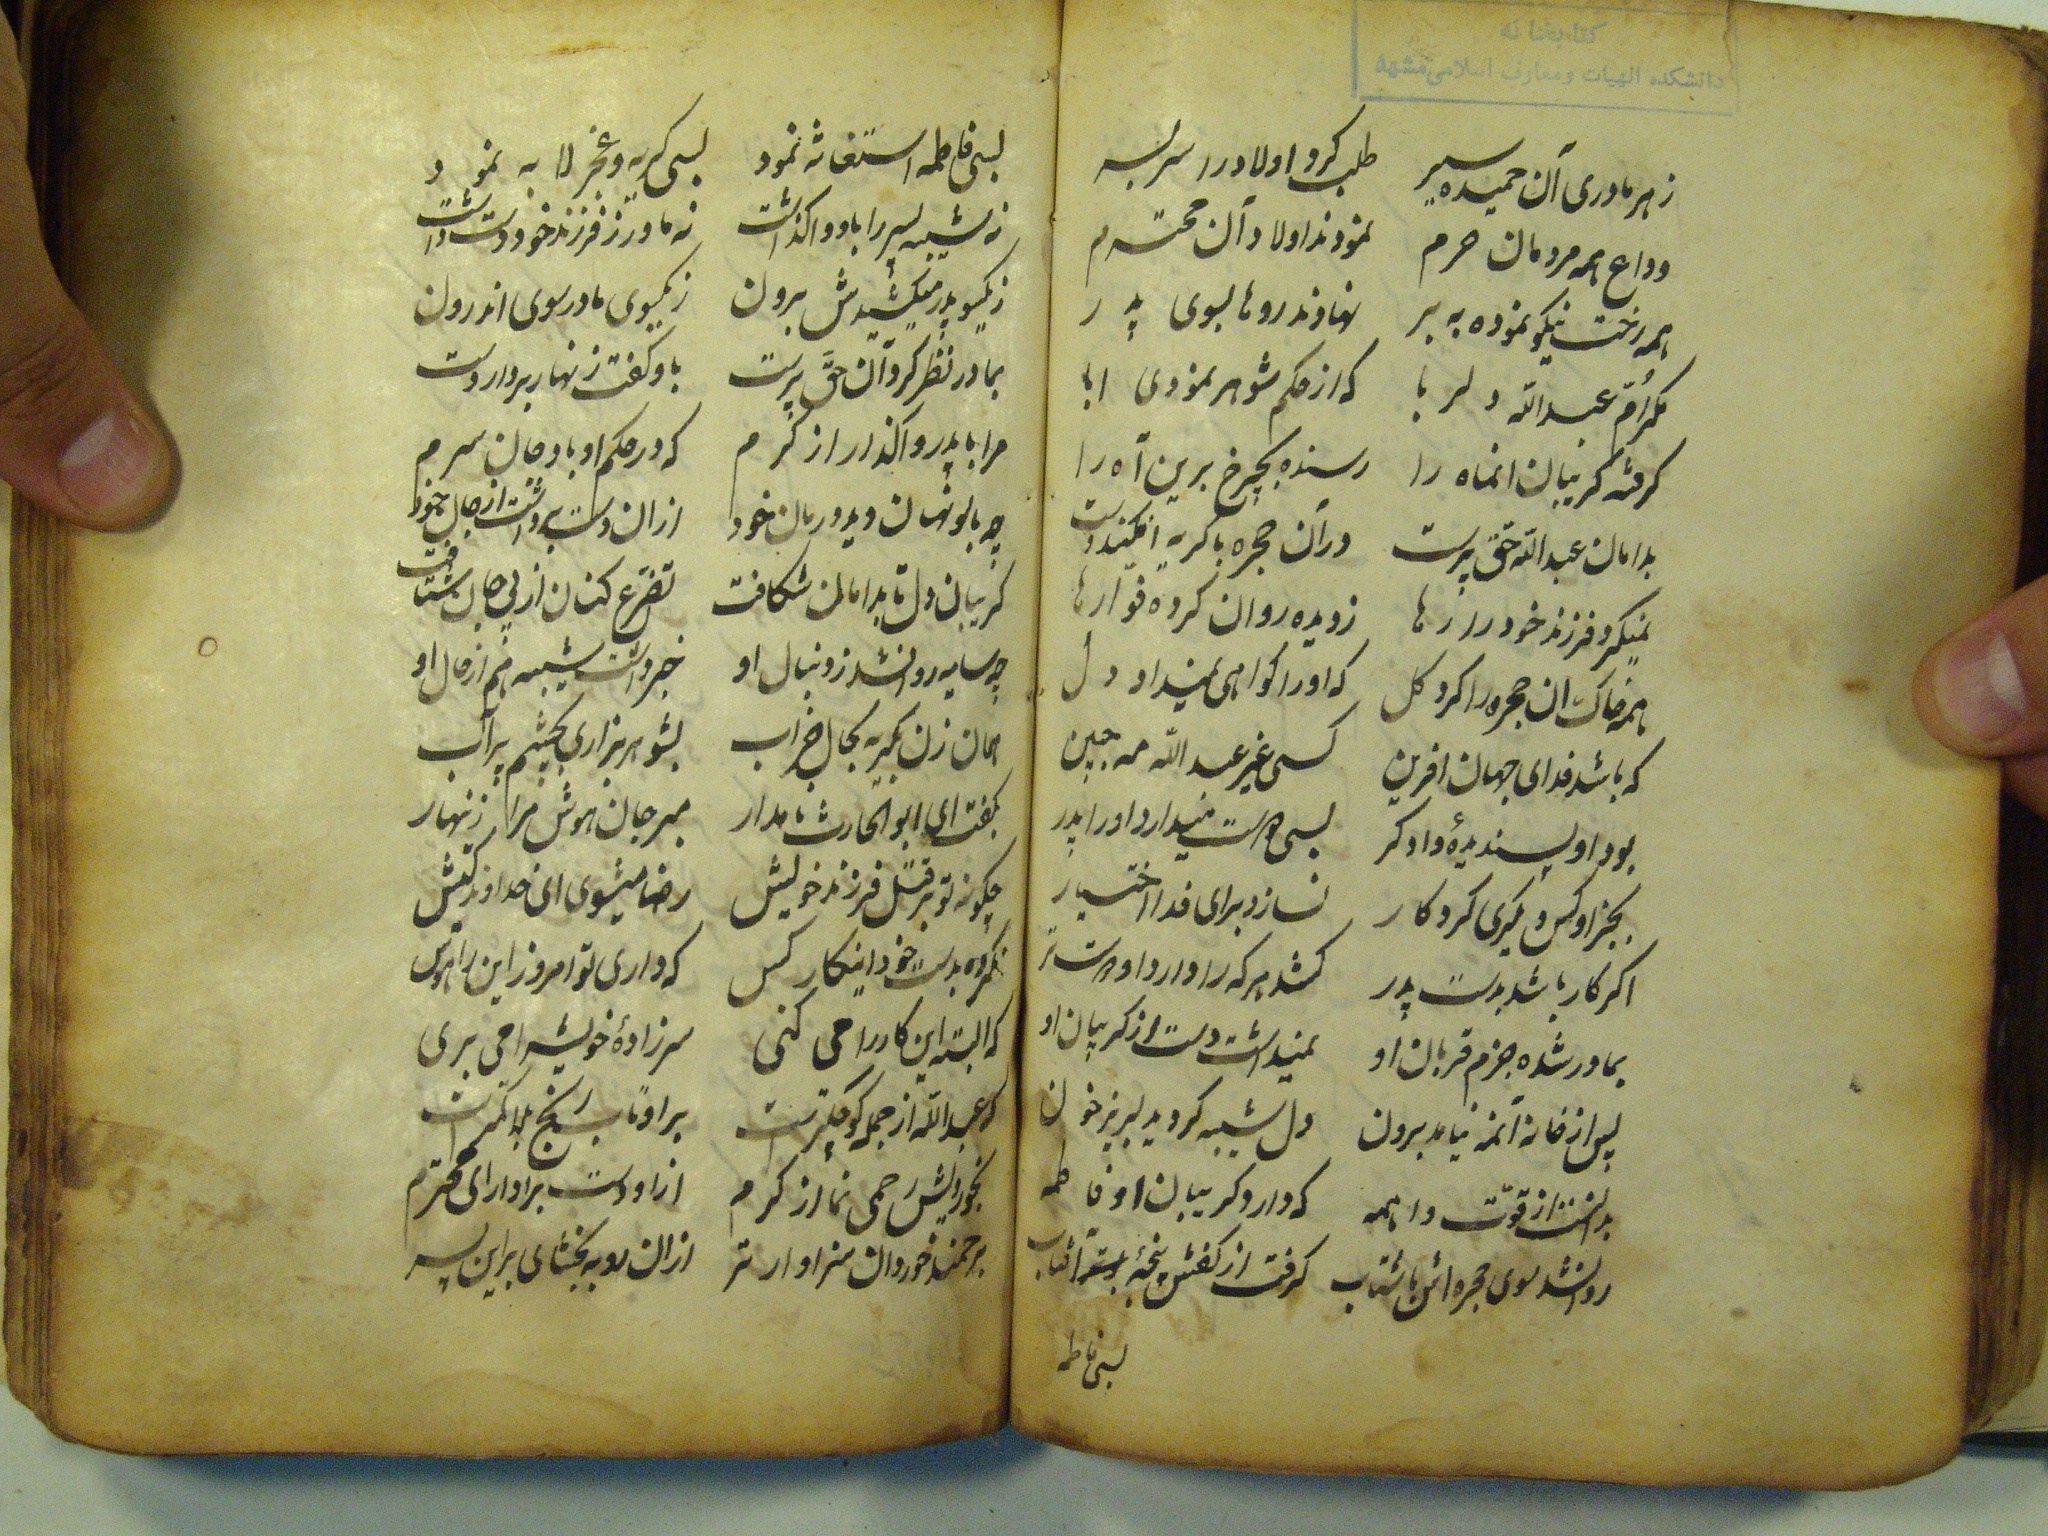 کتابخانه
دانشکده الهیات ومعارف اسلامی مشهد
ز هر مادری آن حمیده سیر طلب کرد اولاد را سر بسر
وداع همه مردمان حرم نمودند اولاد آن محترم
همه رخت نیکو نموده به بر نهادند روها بسوی پدر
مگر ام عبدالله دلربا که از حکم شوهر نمودی ابا
گرفته گریبان انماه را رسنده بچرخ برین آه را
بدامان عبدالله حق پرست در آن حجره با گریه افکند دست
نمیکرد فرزند خود را رها ز دیده روان کرده فوارها
همه خاک ان حجره را کرد گل که او را گواهی نمیداد دل
که باشد فدای جهان افرین کسی غیر عبدالله مه جبین
بود او پسندیدهٔ دادگر بسی دوست میدارد او را پدر
بجز او کس دیگری کردگار نسازد برای فدا اختیار
اگر کار باشد بدست پدر کشد هر که را دارد او دوست تر
بمادر شده جزم قربان او نمیداشت دست از گریبان او
پس از خانه آنمه نیامد برون دل شیبه گردید لبریز خون
بدانست از قوت واهمه که دارد گریبان او فاطمه
روانشد سوی حجره اش با شتاب گرفت از کفش پنجهٔ آفتاب
بسی فاطمه
بسی فاطمه استغاثه نمود بسی گریه و عجز لابه نمود
نه شیبه پسر را باو واگذاشت نه مادر ز فرزند خود دست داشت
ز یکسو پدر میکشیدش برون ز یکسوی مادر سوی اندرون
بمادر نظر کرد آن حق پرست باو گفت زنهار بردار دست
مرا با پدر واگذار از کرم که در حکم او باد جان سرم
چه بانو نهان دید درمان خود ازان دست برداشت از جان خود
گریبان دل تا بدامان شکافت تضرع کنان از پی جان شتافت
چه سایه روانشد ز دنبال او خبر داشت شیبه هم از حال او
همان زن بگریه بحال خراب بشوهر بزاری بچشم پر آب
بگفت ای ابوالحارث نامدار مبر جان هوش مرا زنهار
چگونه تو بر قتل فرزند خویش رضا میشوی ای خداوند کیش
نکرده بدست خود اینکار کس که داری تو امروز این را هوس
که البته این کار را می کنی سر زادهٔ خویش را می بری
که عبدالله از جمله کوچکتر است بر او تاب رنج بلا کمتر است
بخوردیش رحمی نما از کرم ازاو دست بردار ای محترم
برحمند خوردان سزاوار تر ازان رو به بخشای براین پسر